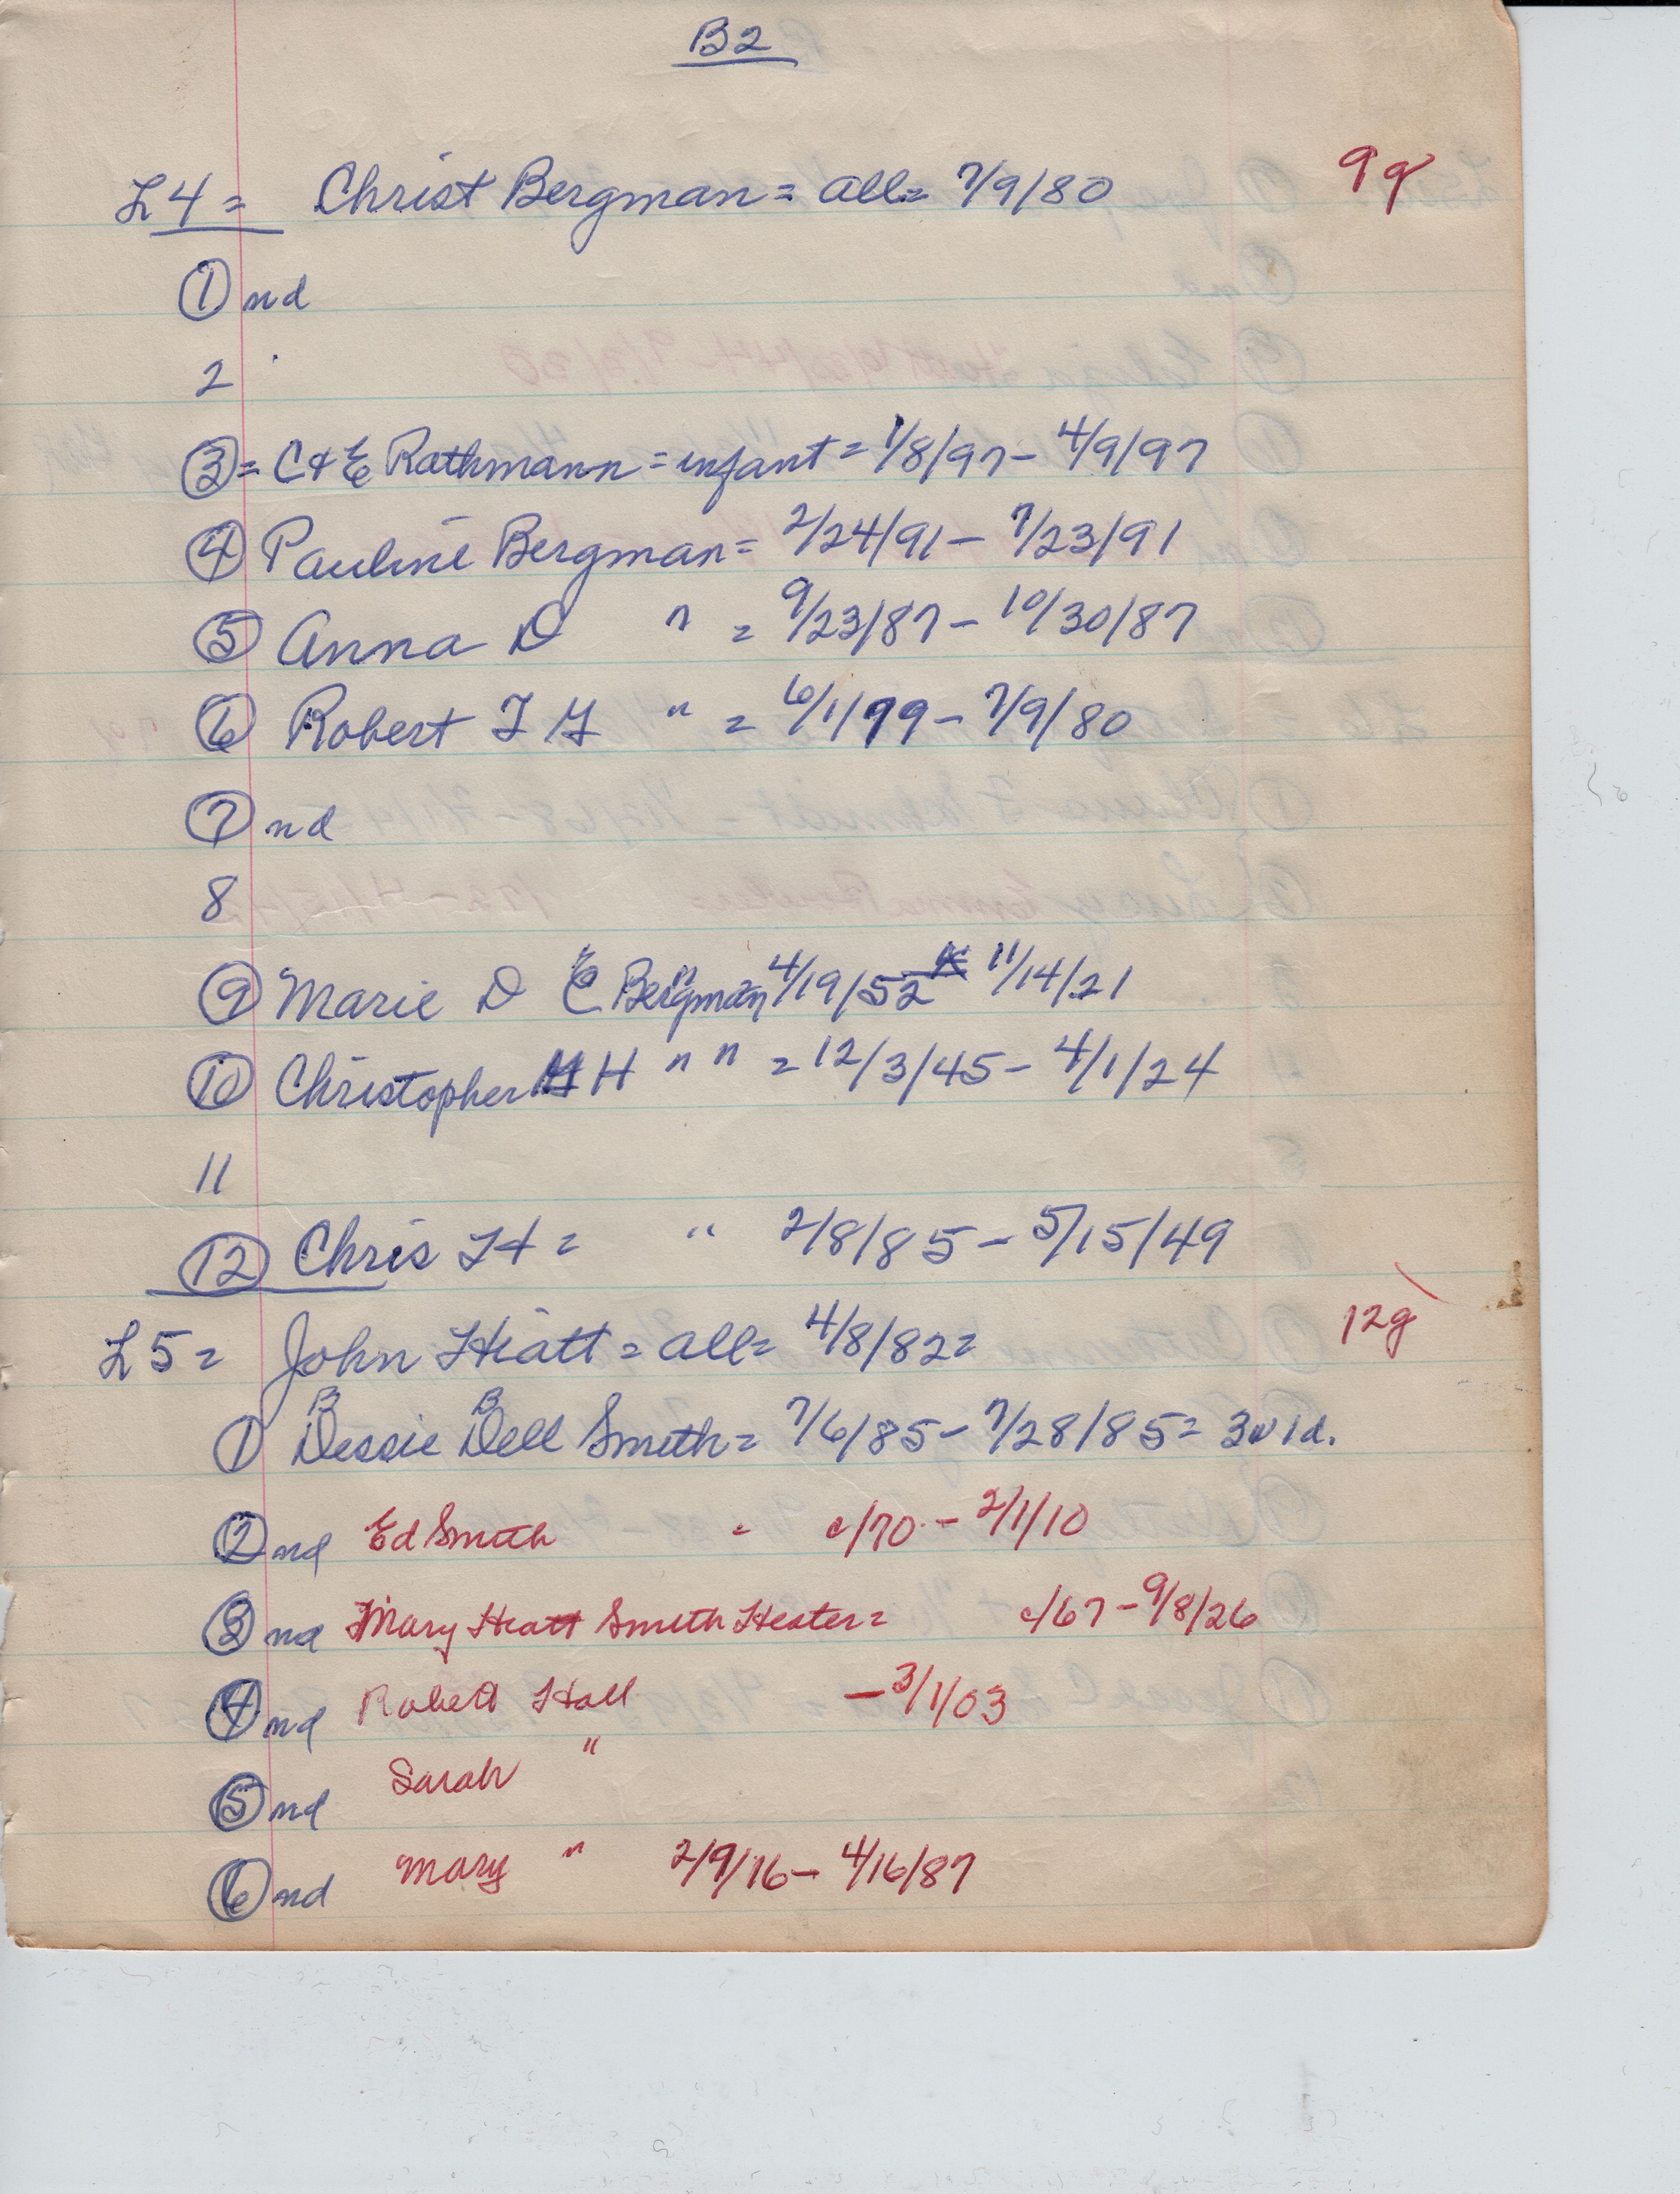 B2
L4 = Christ Bergman = all = 7/9/80 9g
① nd
2
③ = C & E Rathmann = infant = 1/8/97 - 4/9/97
④ Pauline Bergman = 2/24/91 - 7/23/91
⑤ Anna D " = 9/23/87 - 10/30/87
⑥ Robert F G " = 6/1/79 - 7/9/80
⑦ nd
8
⑨ Marie D E Bergman 4/19/52 11/14/21
⑩ Christopher H " " = 12/3/45 - 4/1/24
11
⑫ Chris H = " 2/8/85 - 5/15/49
L5 = John Hiatt = all = 4/8/82 = 12g
① Bessie Bell Smith = 7/6/85 - 7/28/85 = 3w1d.
② nd Ed Smith - c/70 - 2/1/10
③ nd Mary Hiatt Smith Hester = c/67 - 9/8/26
④ nd Robert Hall - 3/1/03
⑤ nd Sarah "
⑥ nd Mary " 2/9/16 - 4/16/87